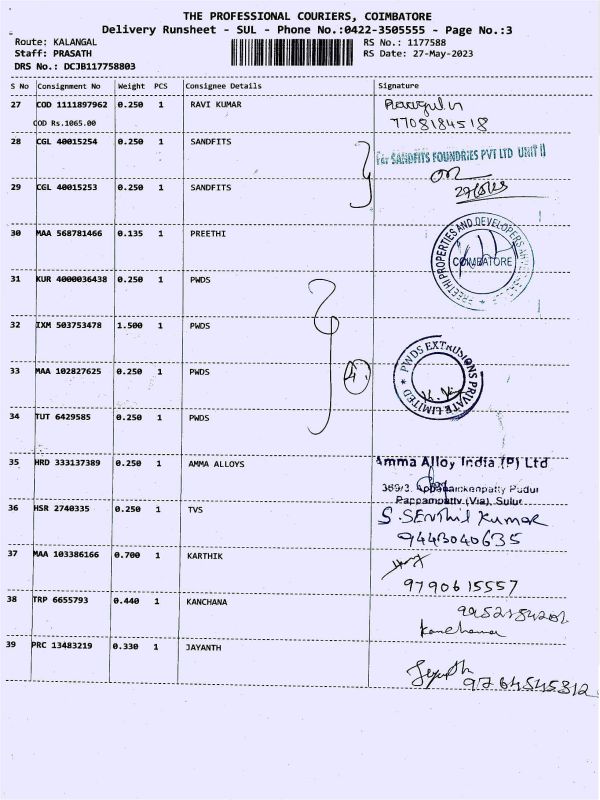 THE PROFESSIONAL COURIERS, COIMBATORE
Delivery Runsheet - SUL - Phone No.:0422-3505555 - Page No.:3
Route: KALANGAL RS No.: 1177588
Staff: PRASATH RS Date: 27-May-2023
DRS No.: DCJB117758803
S No Consignment No Weight PCS Consignee Details Signature
27 COD 1111897962 0.250 1 RAVI KUMAR
COD Rs.1065.00 7708184518
28 CGL 40015254 0.250 1 SANDFITS For SANDFITS FOUNDRIES PVT LTD UNIT II
29 CGL 40015253 0.250 1 SANDFITS 27/5/23
30 MAA 568781466 0.135 1 PREETHI PREETHI PROPERTIES AND DEVELOPERS COIMBATORE
31 KUR 4000036438 0.250 1 PWDS
32 IXM 503753478 1.500 1 PWDS
33 MAA 102827625 0.250 1 PWDS 4. PWDS EXTRUSIONS PRIVATE LIMITED
34 TUT 6429585 0.250 1 PWDS
35 HRD 333137389 0.250 1 AMMA ALLOYS Amma Alloy India (P) Ltd
369/3, Appanaickenpatty Pudur
Pappampatty (Via), Sulur
36 HSR 2740335 0.250 1 TVS S. SENthil Kumar
9443040635
37 MAA 103386166 0.700 1 KARTHIK
9790615557
38 TRP 6655793 0.440 1 KANCHANA
Kanchana
39 PRC 13483219 0.330 1 JAYANTH Jayanth
9764545312